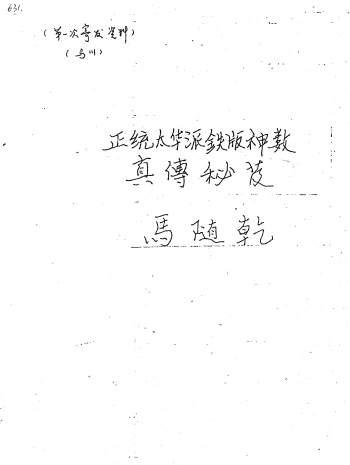 631.
(第一次寄发资料)
(马川)
正统太华派鉄版神数
真傳秘笈
馬随乾